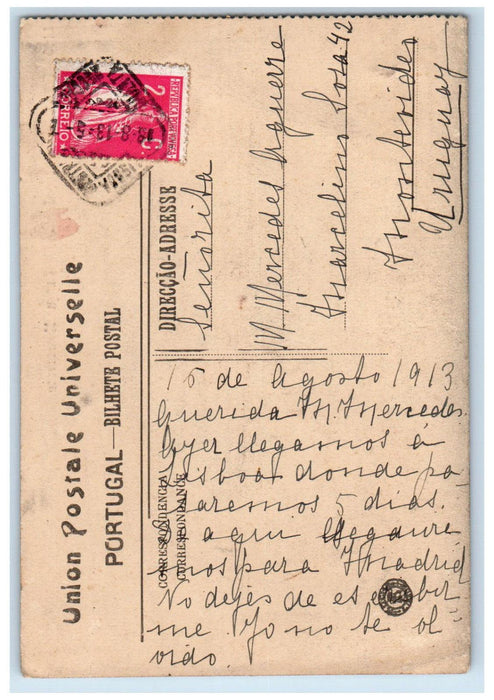 Union Postale Universelle
PORTUGAL — BILHETE POSTAL
CORRESPONDENCIA
CORRESPONDANCE
DIRECÇÃO-ADRESSE
REPUBLICA PORTUGUESA
2 C.
CORREIO
Señorita
M. Mercedes Aguerre
Marcelino Sosa 42
Montevideo
Uruguay
15 de Agosto 1913
Querida M. Mercedes.
Ayer llegamos á
Lisboa donde pa-
saremos 5 dias.
aqui
mos para Madrid
No dejes de escribir
me. Yo no te ol
vido.